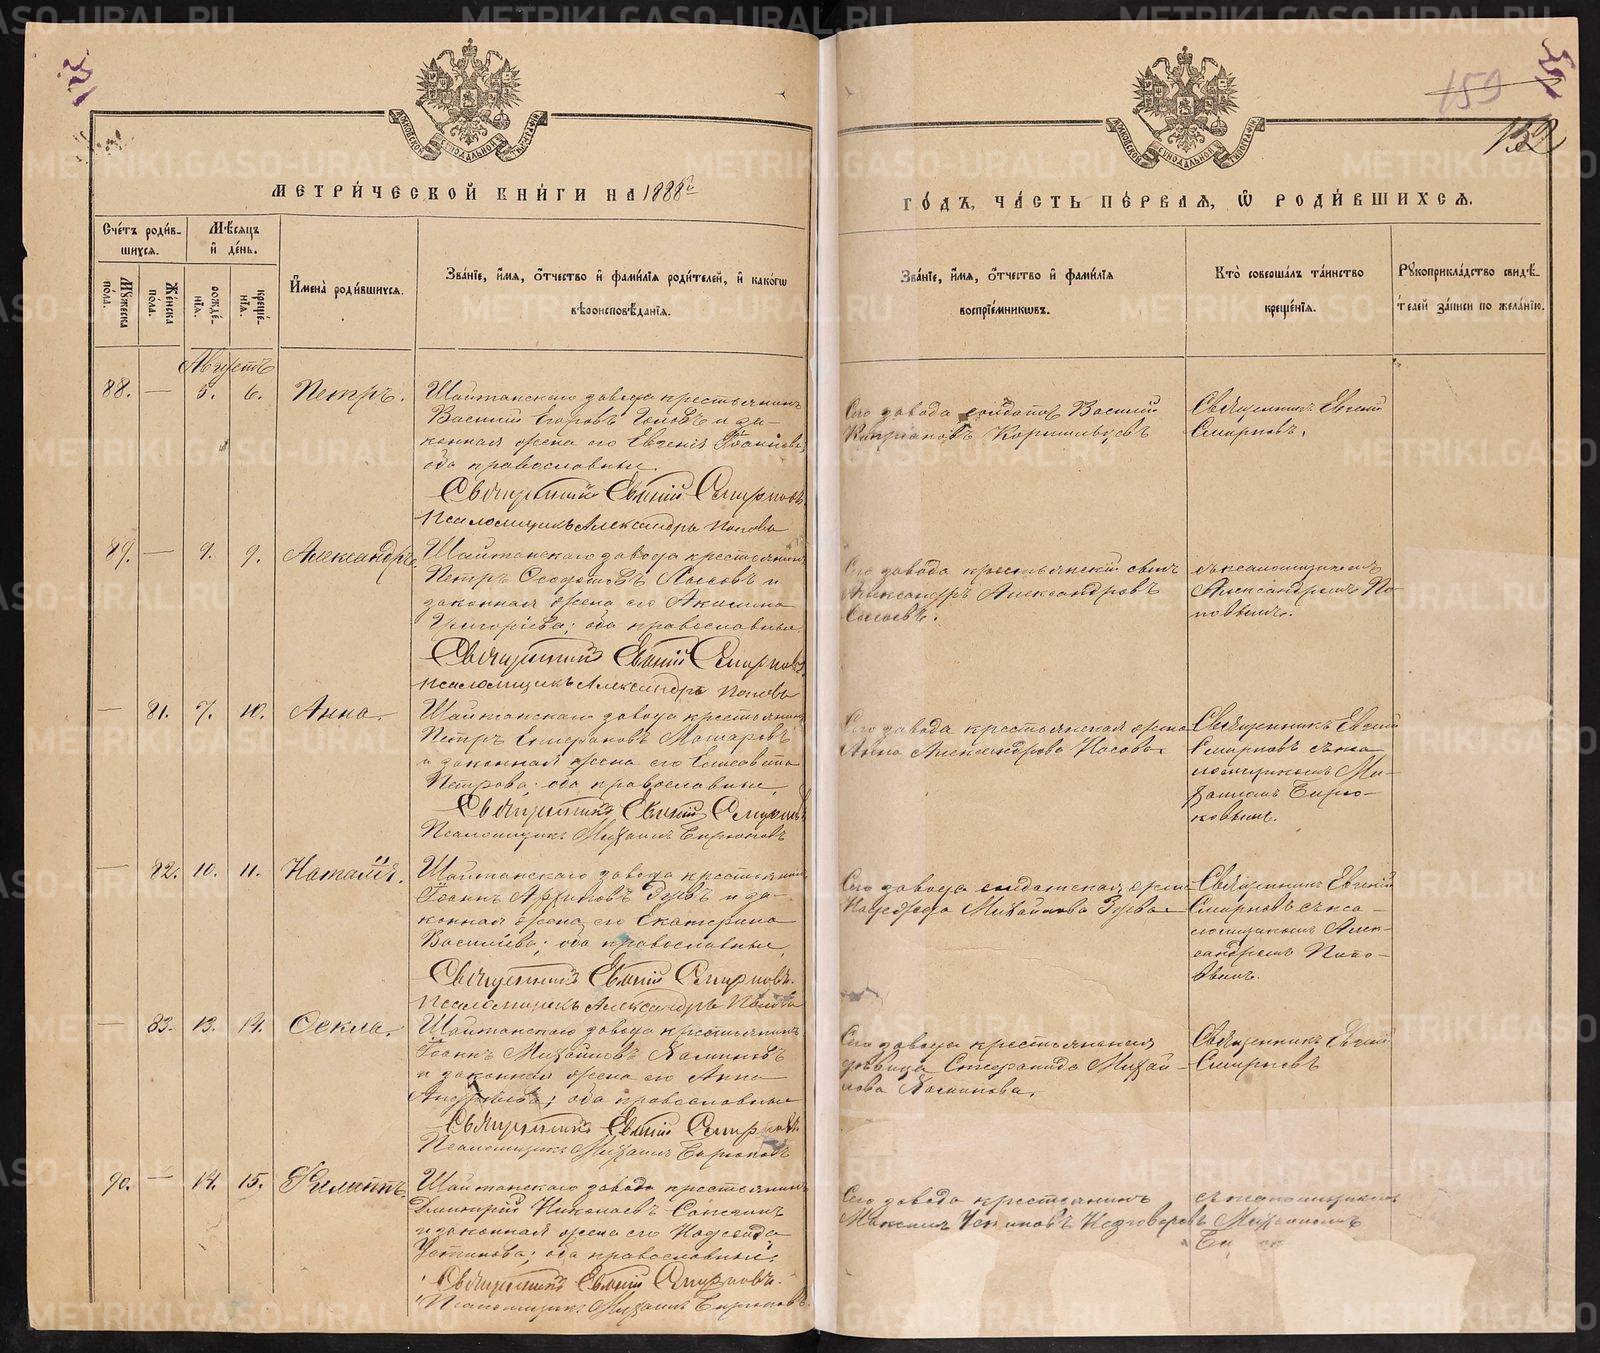 159
152
МЕТРИ́ЧЕСКОЙ КНИ́ГИ НА 1888й
ГО́ДЪ, ЧА́СТЬ ПЕ́РВАЯ, Ѡ РОДИ́ВШИХСЯ.
Сче́тъ роди́в-
шихся.
Мѣсяцъ
и҆ де́нь.
Му́жеска
по́ла.
Же́нска
по́ла.
рожде́-
нїя.
креще́-
нїя.
И҆мена̀ роди́вшихся.
Зва́нїе, и҆́мя, ѻ҆́тчество и҆ фами́лїя роди́телей, и҆ како́гѡ
вѣроисповѣ́данїя.
Зва́нїе, и҆́мя, ѻ҆́тчество и҆ фами́лїя
воспрїе́мникѡвъ.
Кто̀ соверша́лъ та́инство
креще́нїя.
Рꙋкоприкла́дство свидѣ́-
телей за́писи по жела́нїю.
Августъ
88. — 5. 6. Петръ.
Шайтанскаго завода крестьянинъ
Василий Егоровъ и за-
конная жена его Евгения
оба православные.
Священникъ Евгений Смирновъ
Псаломщикъ Александръ Поповъ
Сего завода солдатъ Василий
Киприановъ Кормильцевъ
Священникъ Евгений
Смирновъ.
89. — 9. Александръ.
Шайтанскаго завода крестьянинъ
Петръ Лысовъ и
законная жена его Акилина
Григорьева; оба православные
Священникъ Евгений Смирновъ
Псаломщикъ Александръ Поповъ
Сего завода крестьянский сынъ
Александръ Александровъ
съ псаломщикомъ
Александромъ По-
повымъ.
— 81. 7. 10. Анна.
Шайтанскаго завода крестьянинъ
Петръ Стефановъ Макаровъ
и законная жена его Елисавета
Петрова; оба православные
Священникъ Евгений Смирновъ
Псаломщикъ Михаилъ Бирюковъ
Сего завода крестьянская жена
Анна Александрова Носова.
Священникъ Евгений
Смирновъ съ пса-
ломщикомъ Ми-
хаиломъ Бирю-
ковымъ.
— 82. 10. 11. Наталiя.
Шайтанскаго завода крестьянинъ
Иоаннъ Архиповъ Зуевъ и за-
конная жена его Екатерина
Василиева; оба православные
Священникъ Евгений Смирновъ.
Псаломщикъ Александръ Поповъ
Сего завода солдатская жена
Надежда Михайлова Зуева.
Священникъ Евгений
Смирновъ съ пса-
ломщикомъ Алек-
сандромъ Попо-
вымъ.
— 83. 13. 14. Ѳекла.
Шайтанскаго завода крестьянинъ
Иоаннъ Михайловъ Калининъ
и законная жена его Анна
Андреева; оба православные
Священникъ Евгений Смирновъ.
Псаломщикъ Михаилъ Бирюковъ
Сего завода крестьянская
девица Стефанида Михай-
лова Калинина.
Священникъ Евгений
Смирновъ
90. — 14. 15. Филиппъ.
Шайтанскаго завода крестьянинъ
Димитрий Николаевъ
и законная жена его Надежда
Устинова; оба православные.
Священникъ Евгений Смирновъ.
Псаломщикъ Михаилъ Бирюковъ
Сего завода крестьянинъ
съ псаломщикомъ
Михаиломъ
METRIKI.GASO-URAL.RU